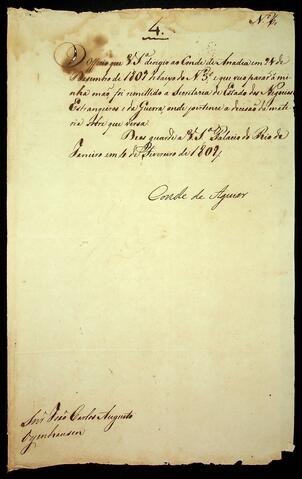 Nº 4.
4.
O Officio que V. Sª dirigio ao Conde de Anadia em 24 de
Dezembro de 1807 debaixo do Nº 3º, e que veio parar á mi
nha mão foi remettido a Secretaria de Estado dos Negocios
Estrangeiros e da Guerra, onde pertence a decisão da mate
ria sobre que versa.
Deos guarde a V. Sª Palacio do Rio de
Janeiro em 4 de Fevereiro de 1809.
Conde de Aguiar
Snr. João Carlos Augusto
Oyenhausen